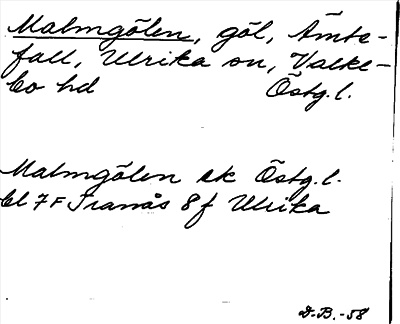 Malmgölen, göl, Ämte-
fall, Ulrika sn, Valke-
bo hd Östg. l.
Malmgölen ek Östg. l.
bl 7F Tranås 8f Ulrika
D.B. -58